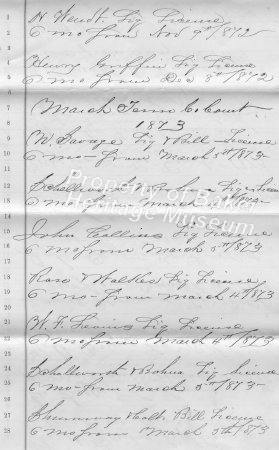 1 H Wendt Liq License
2 6 mo from Nov 9th/1872
3
4 Henry Griffin Liq License
5 6 mo from Dec 8th/1872
6
7 March Term Co Court
8 1873
9 W. Savage Liq & Bill License
10 6 mo from March 5th 1873
11
12 Shallworth Liq License
13 6 mo from March 1873
14
15 John Collins Liq License
16 6 mo from March 5th/1873
17
18 Rose & Walker Liq License
19 6 mo from March 4th/1873
20
21 W. F. Liq License
22 6 mo from March 4th/1873
23
24 Shallworth & Liq License
25 6 mo from March 5th/1873
26
27 Shumway & Bill License
28 6 mo from March 5th/1873
Property of Baker
Heritage Museum